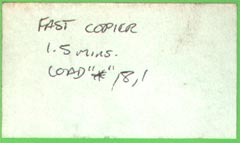 FAST COPIER
1.5 MINS.
LOAD"*",8,1